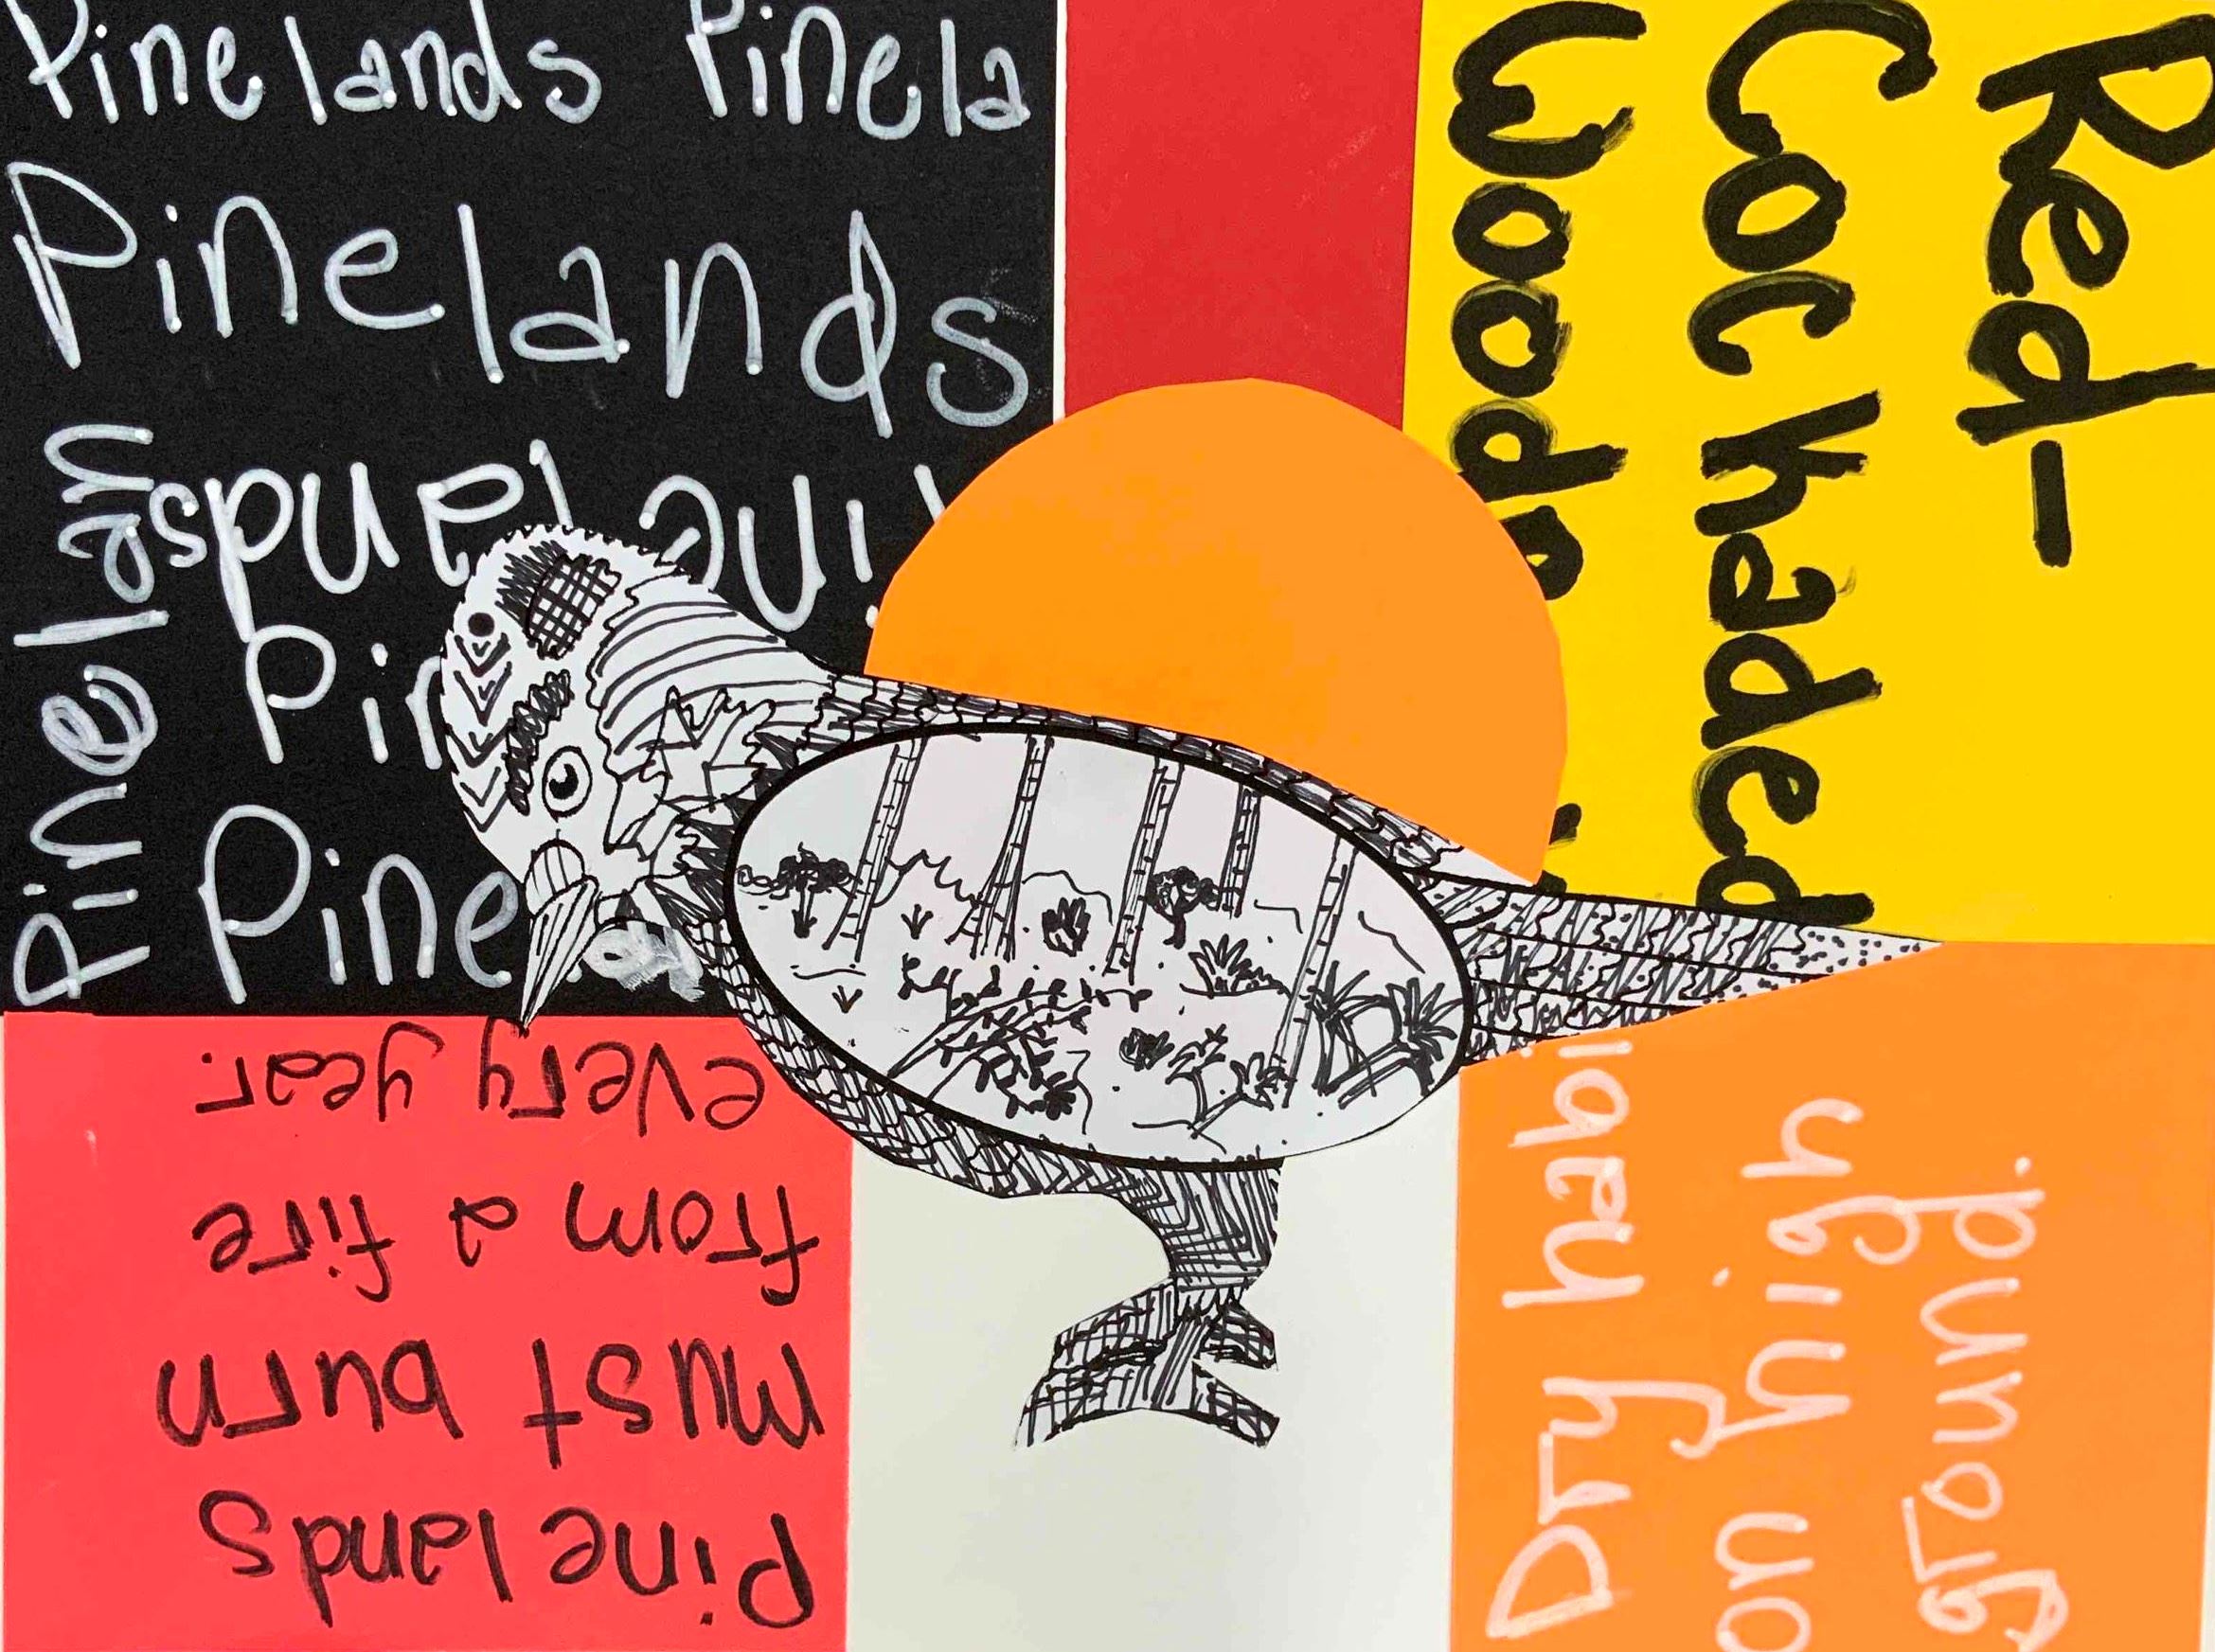 Pinelands Pinela
Pinelands
Pinelands
Pinelan
Pin
Pine
Red-
Cockaded
Woodpe
Pinelands
must burn
from a fire
every year.
Dry habi
on high
ground.